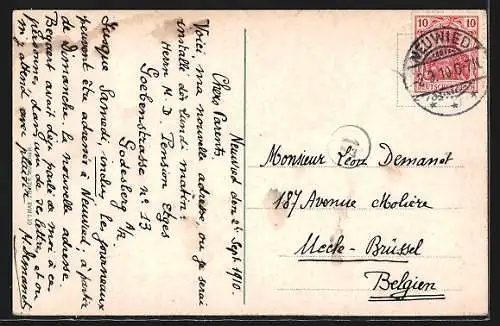 Neuwied den 2 Sept. 1910.
Chers Parents,
Voici ma nouvelle adresse, où je serai
installé dès lundi matin:
Herrn M. D. Pension Elges
Goebenstrasse n° 13
Godesberg a/R
Jusque Samedi, inclus, les journeaux
peuvent être adressés à Neuwied, à partir
de Dimanche la nouvelle adresse.
Begaert avait déjà parlé de moi à ce
dans une lettre, et on
m'y attend avec plaisir
M. Demanet
10 10
DEUTSCHES REICH
NEUWIED
Monsieur Léon Demanet
187 Avenue Molière
Uccle-Brüssel
Belgien